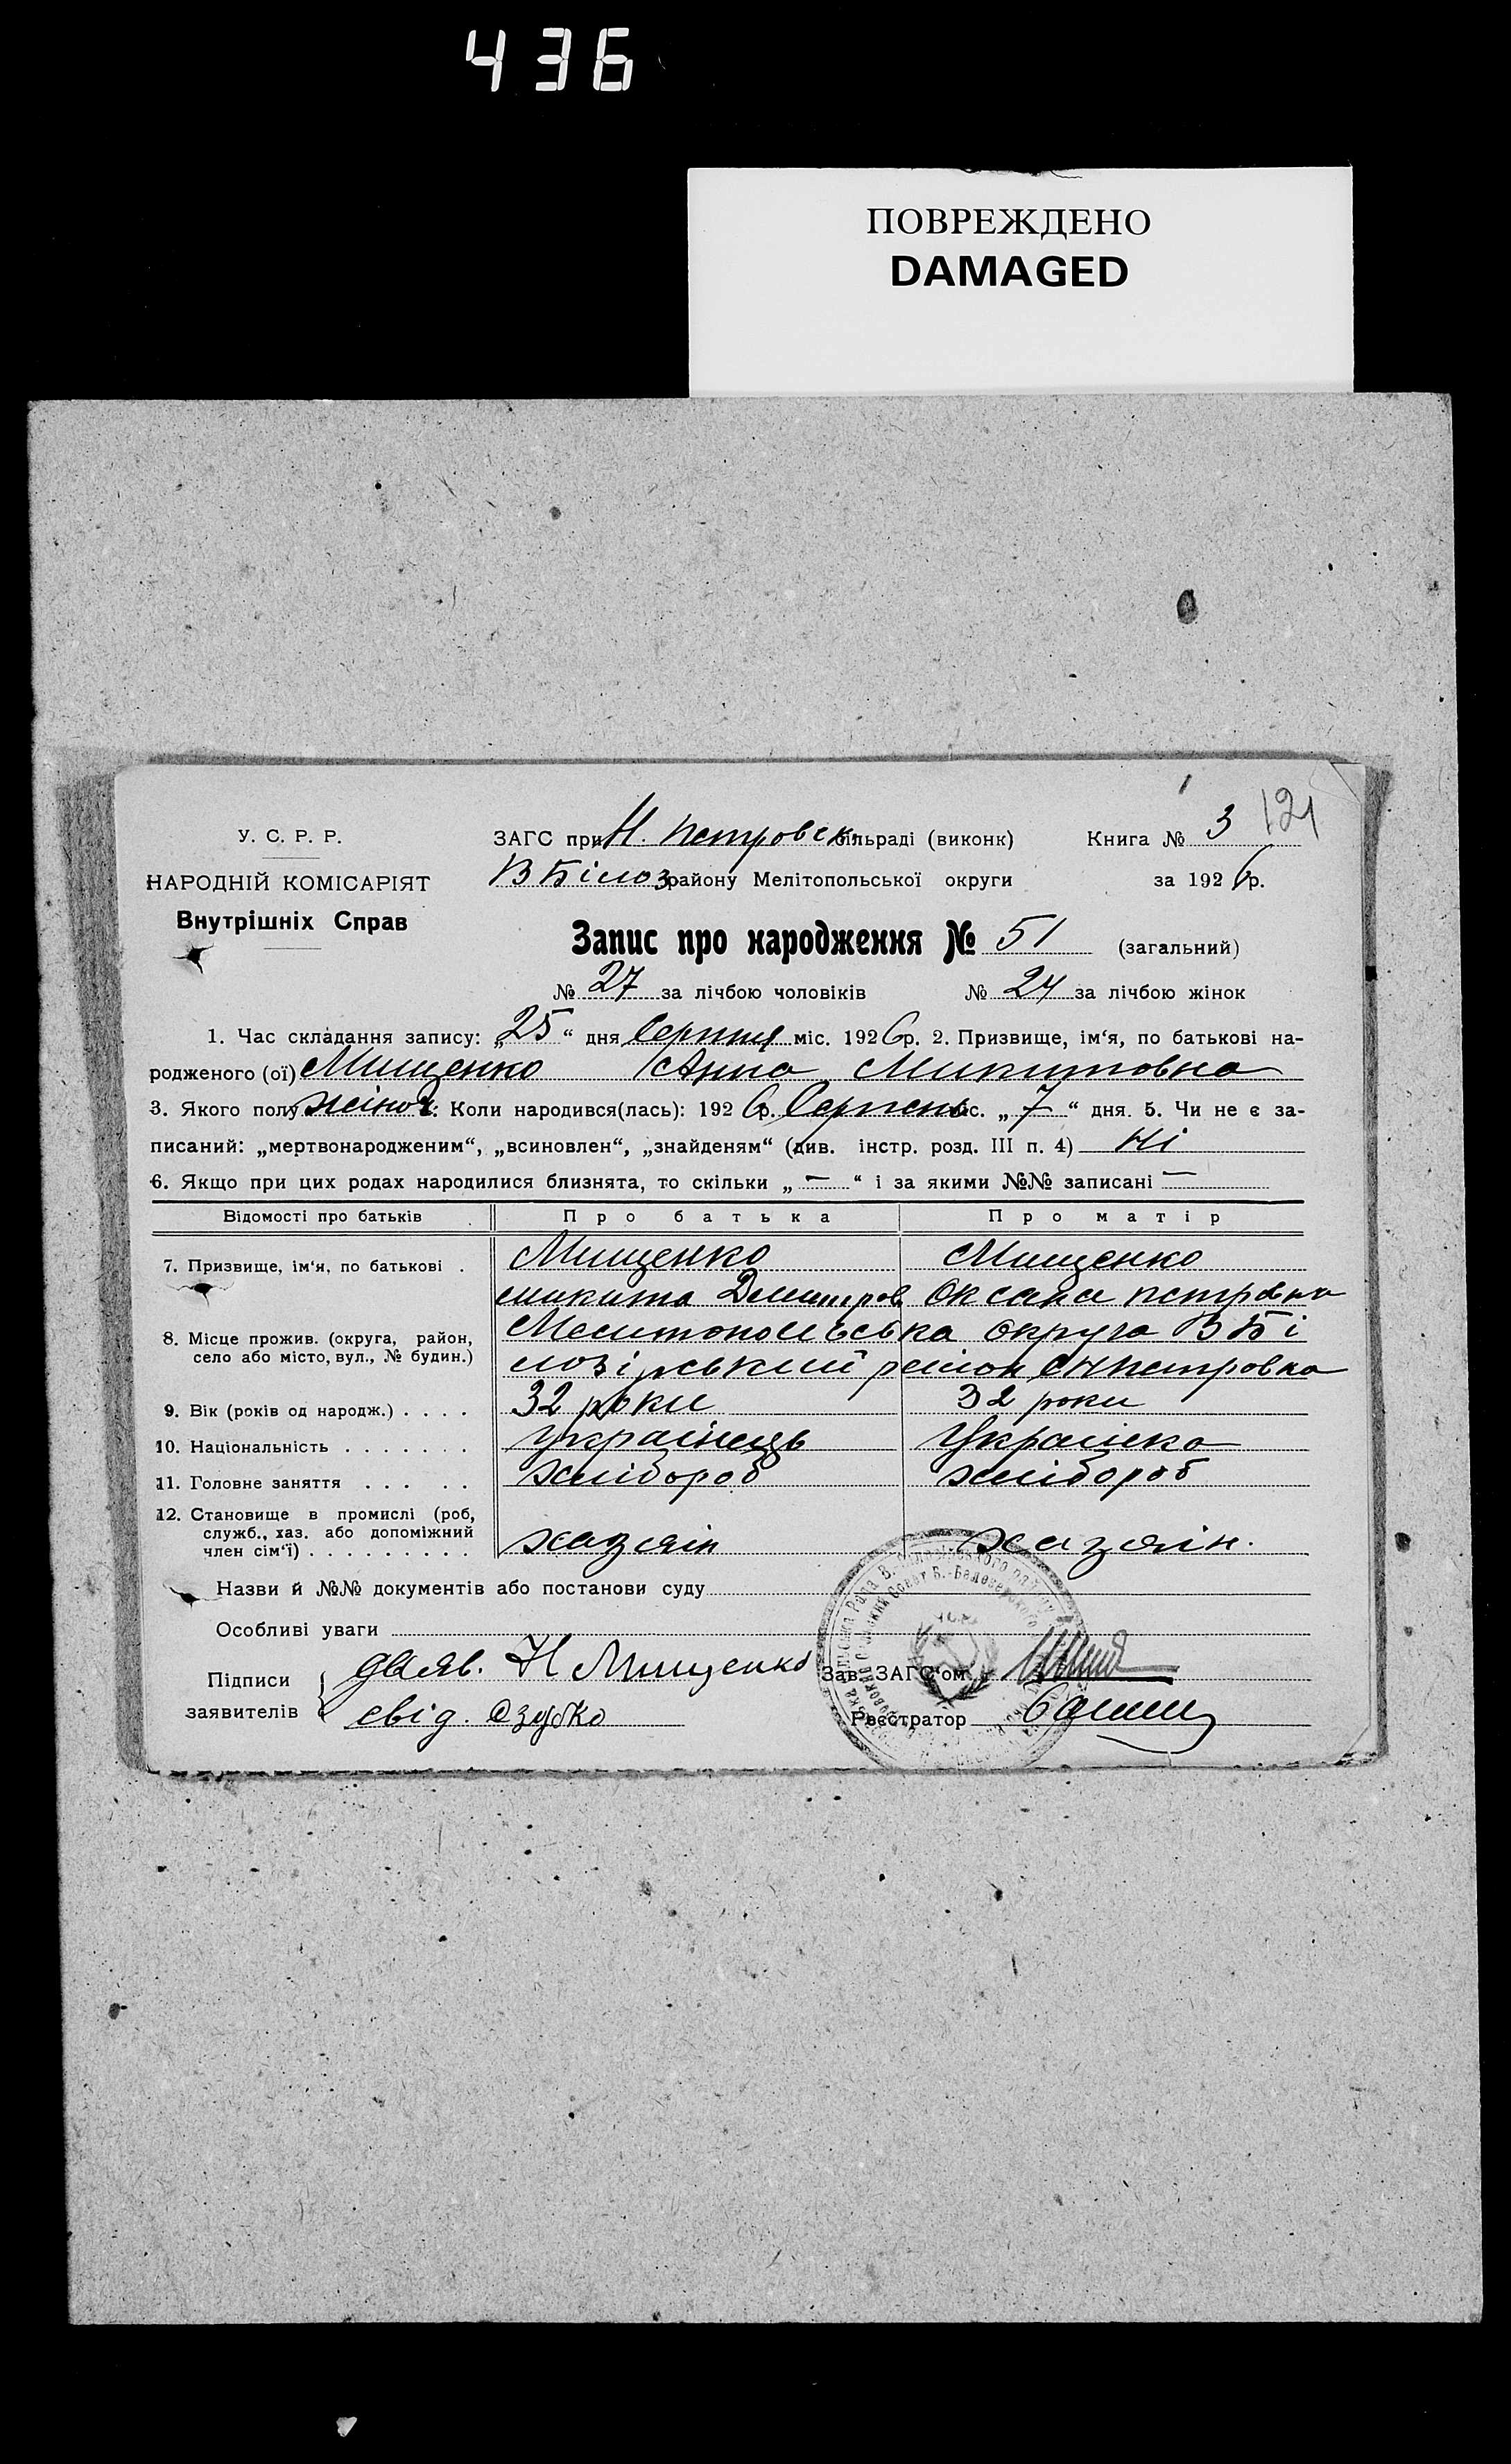 436
ПОВРЕЖДЕНО
DAMAGED
У. С. Р. Р.
НАРОДНІЙ КОМІСАРІЯТ
Внутрішніх Справ
ЗАГС при Н. Петровск. сільраді (виконк)
Книга № 3 121
В Білоз району Мелітопольської округи
за 1926 р.
Запис про народження № 51 (загальний)
№ 27 за лічбою чоловіків № 24 за лічбою жінок
1. Час складання запису: „25“ дня Серпня міс. 1926 р. 2. Призвище, ім‘я, по батькові на-
родженого (ої) Мищенко Анна Микитовна
3. Якого полу жіноч. Коли народився(лась): 1926 р. Серпень міс. „7“ дня. 5. Чи не є за-
писаний: „мертвонародженим“, „всиновлен“, „знайденям“ (див. інстр. розд. III п. 4) Ні
6. Якщо при цих родах народилися близнята, то скільки „—“ і за якими №№ записані —
Відомості про батьків Про батька Про матір
7. Призвище, ім‘я, по батькові . Мищенко Мищенко
микита Дмитров Оксана петровна
8. Місце прожив. (округа, район,
село або місто, вул., № будин.)
Мелитопольська округа В Бі
лозірський район с Нпетровка
9. Вік (років од народж.) . . . . 32 роки 32 роки
10. Національність . . . . . . . українець Українка
11. Головне заняття . . . . . хлібороб хлібороб
12. Становище в промислі (роб,
служб., хаз. або допоміжний
член сім‘ї) . . . . . . . . . хазяін хазяін.
Назви й №№ документів або постанови суду
Особливі уваги
Підписи
заявителів
заяв. Н Мищенко
свід. Озубко
Зав. ЗАГС‘ом
Реєстратор